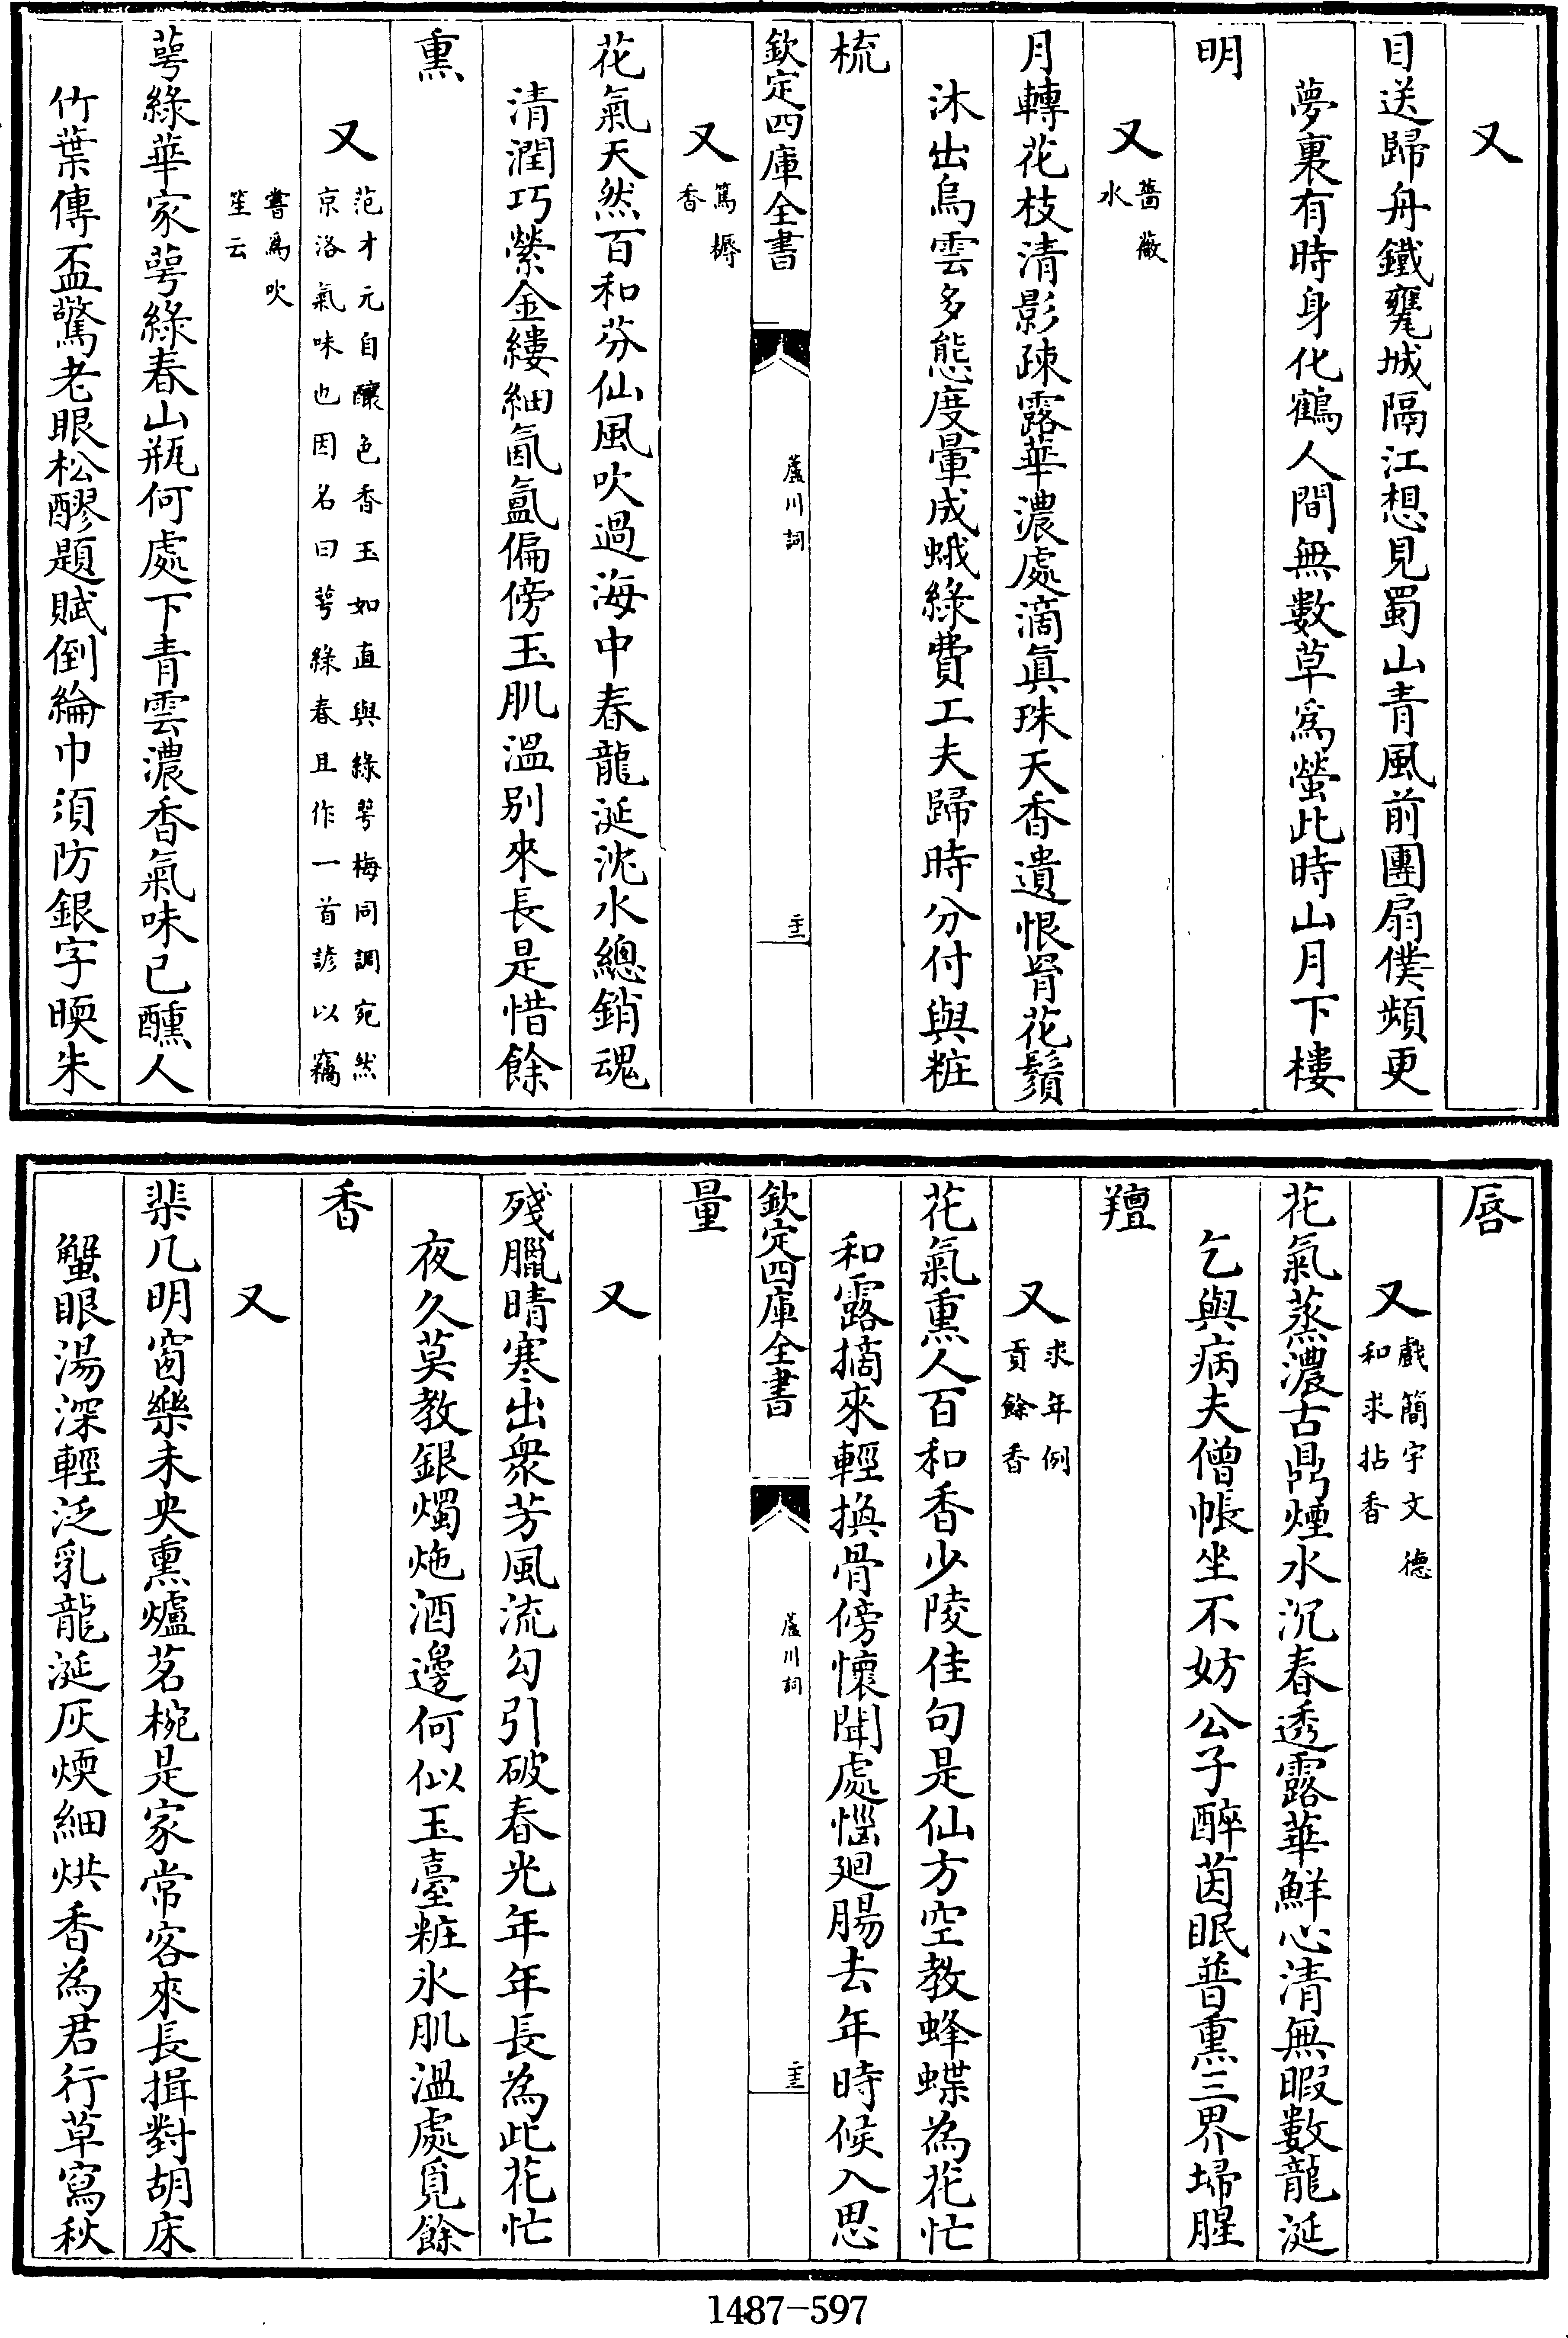 又
目送歸舟鐵甕城隔江想見蜀山青風前團扇僕頻更
夢裏有時身化鶴人間無數草爲螢此時山月下樓
明
又薔薇
水
月轉花枝清影疎露華濃處滴眞珠天香遺恨罥花鬚
沐出烏雲多態度暈成蛾綠費工夫歸時分付與粧
梳
欽定四庫全書
蘆川詞
又篤耨
香
花氣天然百和芬仙風吹過海中春龍涎沈水總銷魂
清潤巧縈金縷細氤氲偏傍玉肌溫别來長是惜餘
熏
又范才元自釀色香玉如直與綠萼梅同調宛然
京洛氣味也因名曰萼綠春且作一首諺以竊
嘗爲吹
笙云
萼綠華家萼綠春山瓶何處下青雲濃香氣味已醺人
竹葉傳盃驚老眼松醪題賦倒綸巾須防銀字暖朱
唇
又戲簡宇文德
和求拈香
花氣蒸濃古鼎煙水沉春透露華鮮心清無暇數龍涎
乞與病夫僧帳坐不妨公子醉茵眠普熏三界埽腥
羶
又求年例
貢餘香
花氣熏人百和香少陵佳句是仙方空教蜂蝶為花忙
和露摘來輕換骨傍懷聞處惱廻腸去年時候入思
量
欽定四庫全書
蘆川詞
又
殘臘晴寒出衆芳風流勾引破春光年年長為此花忙
夜久莫教銀燭灺酒邊何似玉臺粧氷肌溫處覓餘
香
又
棐几明窗樂未央熏爐茗椀是家常客來長揖對胡床
蟹眼湯深輕泛乳龍涎灰煖細烘香為君行草寫秋
1487-597